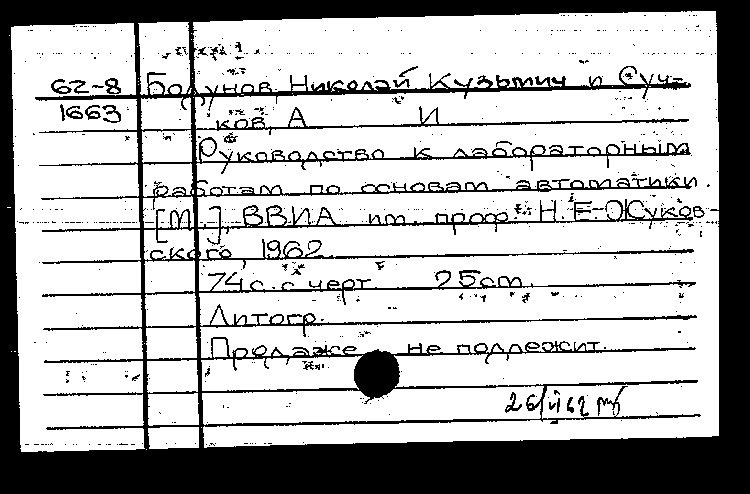 62-8 Бодунов, Николай Кузьмич и Суч-
1663 ков, А И
Руководство к лабораторным
работам по основам автоматики.
[М.], ВВИА им. проф. Н.Е. Жуков-
ского, 1962
74 с. с черт 25 cm.
Литогр.
Продаже не подлежит.